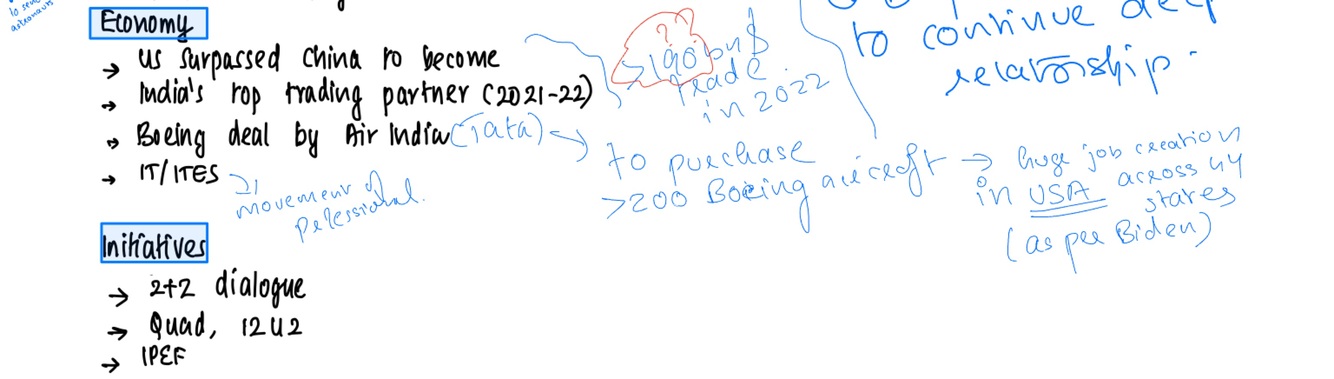 to send
astronauts
Economy
→ US surpassed China to become
→ India's top trading partner (2021-22)
→ Boeing deal by Air India (Tata) →
→ IT/ITES →
movement of
?
>190 bn $
trade
in 2022
to continue deep
relationship.
to purchase
>200 Boeing aircraft →
huge job creation
in USA across 44
states
(as per Biden)
Initiatives
→ 2+2 dialogue
→ Quad, I2U2
→ IPEF